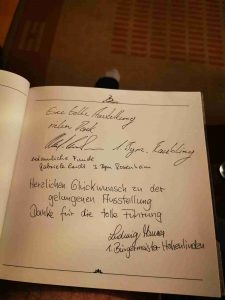 Eine tolle Ausstellung
vielen Dank
1. Bgm.
erstaunliche Funde
Gabriele 3. Bgm Rosenheim
Herzlichen Glückwunsch zu der
gelungenen Ausstellung
Danke für die tolle Führung
Ludwig
1. Bürgermeister Hohenlinden